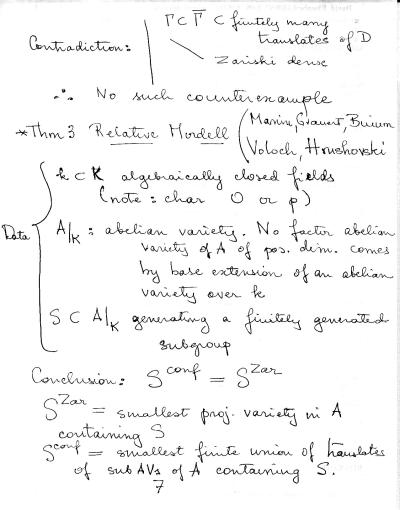 Contradiction: Γ ⊂ Γ̄ ⊂ finitely many
translates of D
Zariski dense
∴ No such counterexample
*Thm 3 Relative Mordell (Manin, Grauert, Buium
Voloch, Hrushovski)
Data
k ⊂ K algebraically closed fields
(note: char 0 or p)
A/K : abelian variety. No factor abelian
variety of A of pos. dim. comes
by base extension of an abelian
variety over k
S ⊂ A/K generating a finitely generated
subgroup
Conclusion: S^conf = S^Zar
S^Zar = smallest proj. variety in A
containing S
S^conf = smallest finite union of translates
of sub AVs of A containing S.
7